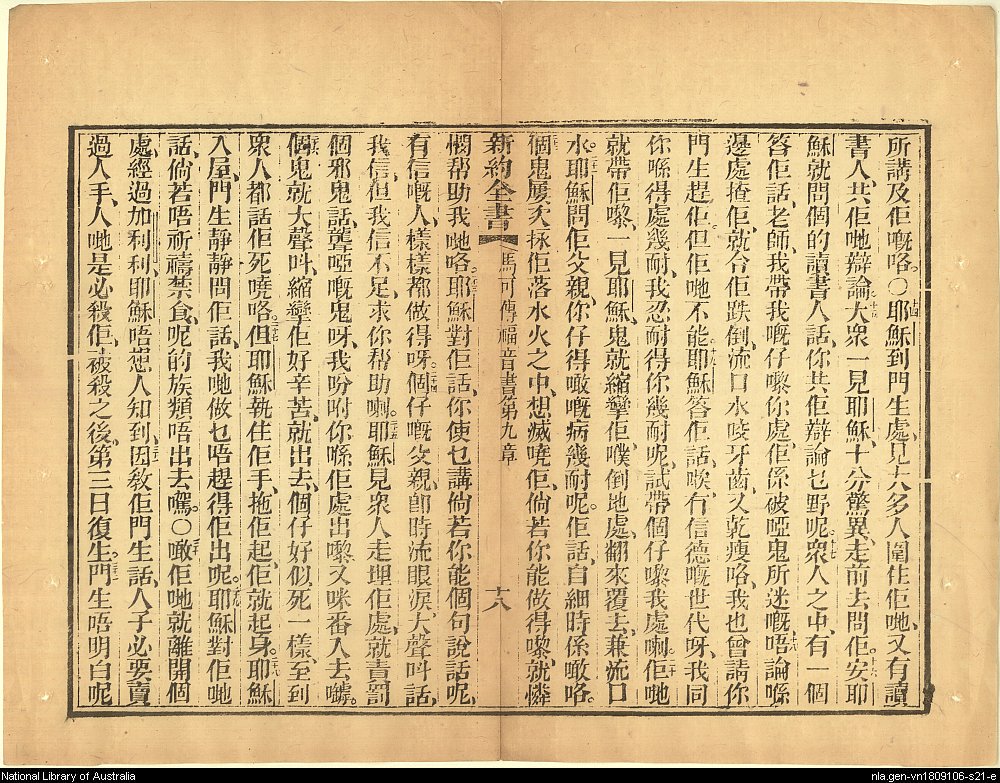 所講及佢嘅咯。〇十四耶穌到門生處、見大多人圍住佢哋、又有讀
書人共佢哋辯論。十五大衆一見耶穌、十分驚異、走前去問佢安。十六耶
穌就問個的讀書人話、你共佢辯論乜野呢。十七衆人之中、有一個
答佢話、老師、我帶我嘅仔嚟你處、佢係被啞鬼所迷嘅。十八唔論喺
邊處揸佢、就令佢跌倒、流口水、咬牙齒、又乾瘦咯、我也曾請你
門生趕佢、但佢哋不能。十九耶穌答佢話、唉、冇信德嘅世代呀、我同
你喺得處幾耐、我忍耐得你幾耐呢、試帶個仔嚟我處喇。二十佢哋
就帶佢嚟、一見耶穌、鬼就縮攣佢、噗倒地處、翻來覆去、兼流口
水。二十一耶穌問佢父親、你仔得噉嘅病幾耐呢。佢話、自細時係噉咯。
二十二個鬼屢次抹佢落水火之中、想滅嘵佢、倘若你能做得嚟、就憐
新約全書 馬可傳福音書第九章 十八
憫帮助我哋咯。二十三耶穌對佢話、你使乜講倘若你能個句說話呢、
有信嘅人、樣樣都做得呀。二十四個仔嘅父親、卽時流眼淚、大聲呌話、
我信、但我信不足、求你帮助喇。二十五耶穌見衆人走埋佢處、就責罰
個邪鬼話、聾啞嘅鬼呀、我吩咐你喺佢處出嚟、又咪番人去嘑。
二十六個鬼就大聲呌、縮攣佢好辛苦、就出去、個仔好似死一樣、至到
衆人都話佢死嘵咯。二十七但耶穌執住佢手、拖佢起、佢就起身。二十八耶穌
入屋、門生靜靜問佢話、我哋做乜唔趕得佢出呢。二十九耶穌對佢哋
話、倘若唔祈禱禁食、呢的族類唔出去嘅。〇三十噉佢哋就離開個
處、經過加利利、耶穌唔想人知到。三十一因教佢門生話、人子必要賣
過人手、人哋是必殺佢、被殺之後、第三日復生。三十二門生唔明白呢